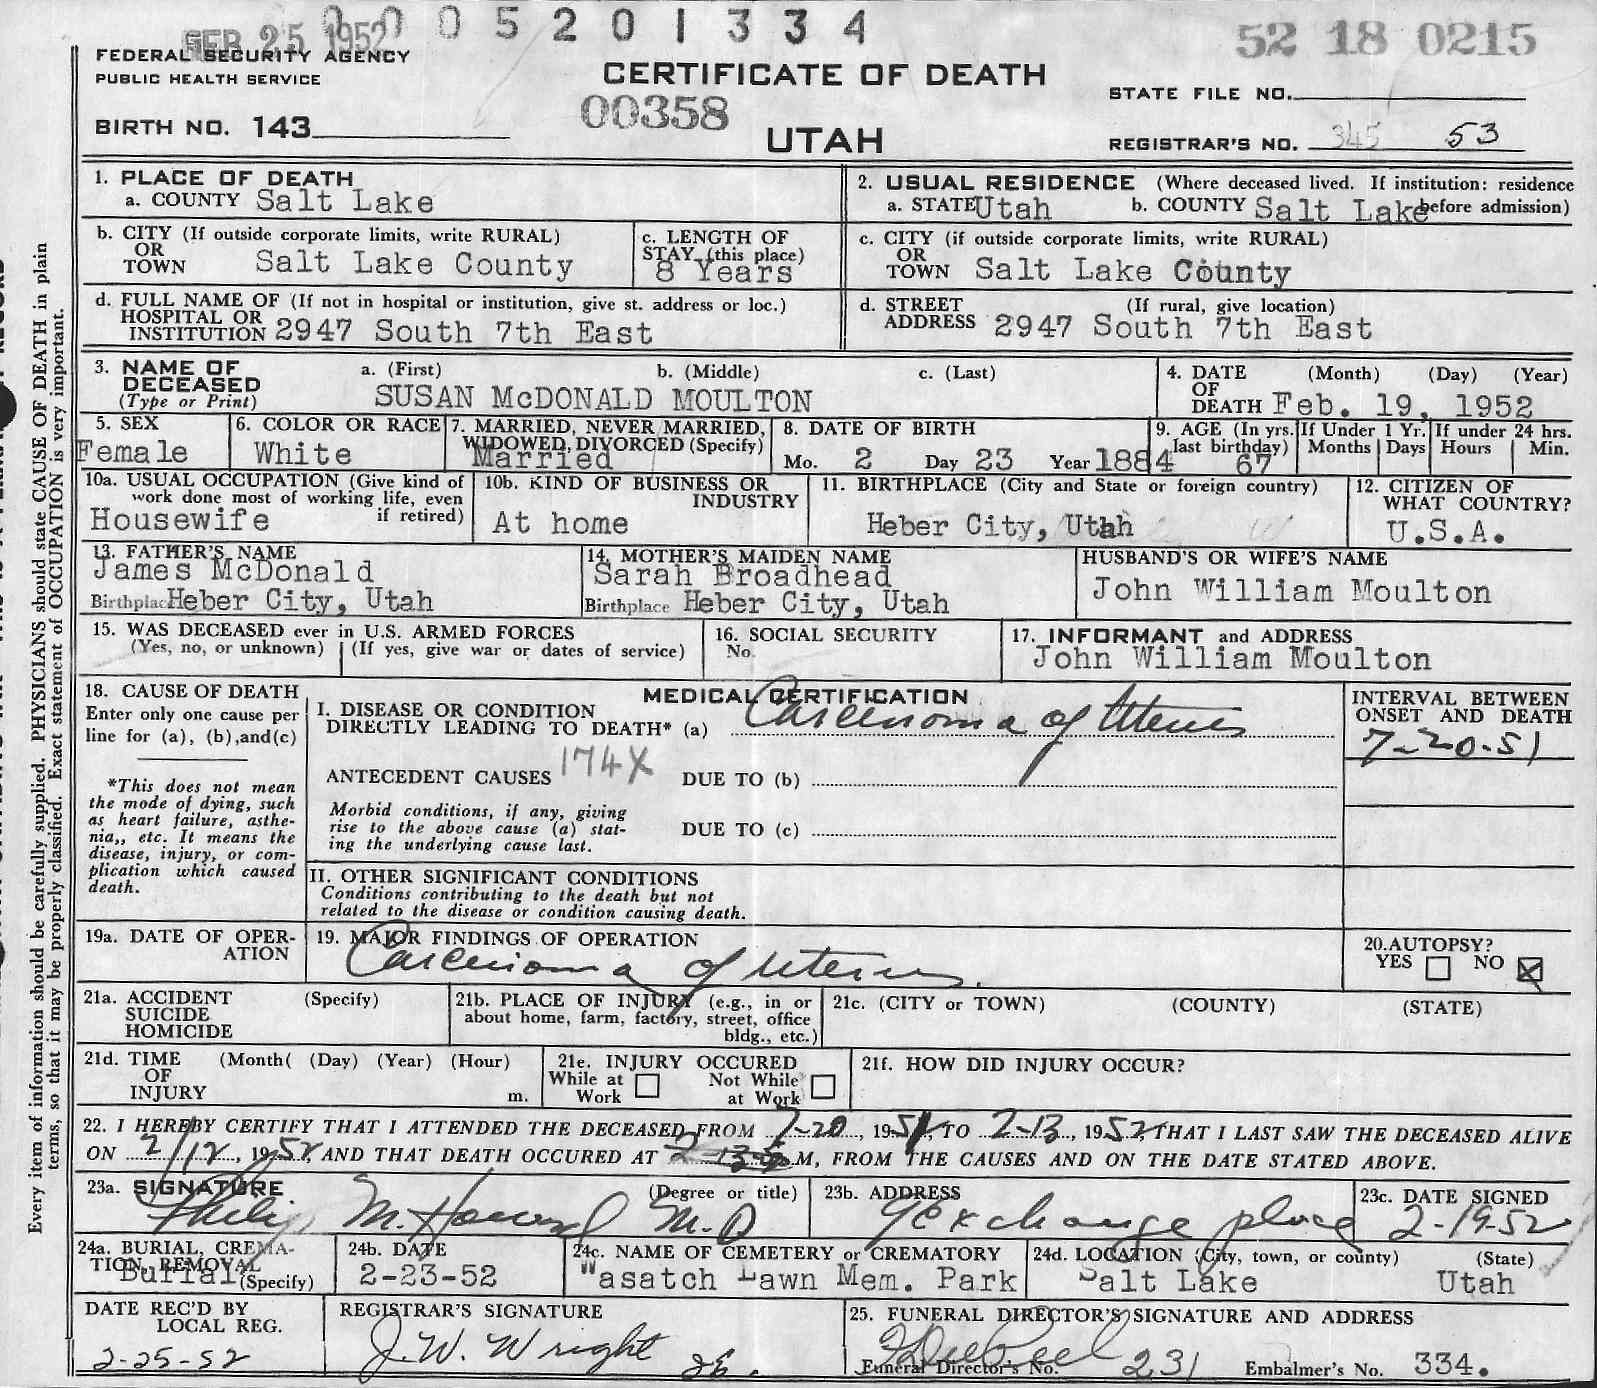 0005201334
FEB 25 1952
52 18 0215
FEDERAL SECURITY AGENCY
PUBLIC HEALTH SERVICE
CERTIFICATE OF DEATH
STATE FILE NO.
00358
BIRTH NO. 143
UTAH
REGISTRAR'S NO. 345 53
1. PLACE OF DEATH
a. COUNTY Salt Lake
2. USUAL RESIDENCE (Where deceased lived. If institution: residence
a. STATE Utah b. COUNTY Salt Lake before admission)
b. CITY (If outside corporate limits, write RURAL)
OR
TOWN Salt Lake County
c. LENGTH OF
STAY (this place)
8 Years
c. CITY (if outside corporate limits, write RURAL)
OR
TOWN Salt Lake County
d. FULL NAME OF (If not in hospital or institution, give st. address or loc.)
HOSPITAL OR
INSTITUTION 2947 South 7th East
d. STREET (If rural, give location)
ADDRESS 2947 South 7th East
3. NAME OF a. (First) b. (Middle) c. (Last)
DECEASED
(Type or Print) SUSAN McDONALD MOULTON
4. DATE (Month) (Day) (Year)
OF
DEATH Feb. 19, 1952
5. SEX
Female
6. COLOR OR RACE
White
7. MARRIED, NEVER MARRIED,
WIDOWED, DIVORCED (Specify)
Married
8. DATE OF BIRTH
Mo. 2 Day 23 Year 1884
9. AGE (In yrs.
last birthday)
67
If Under 1 Yr.
Months Days
If under 24 hrs.
Hours Min.
10a. USUAL OCCUPATION (Give kind of
work done most of working life, even
if retired)
Housewife
10b. KIND OF BUSINESS OR
INDUSTRY
At home
11. BIRTHPLACE (City and State or foreign country)
Heber City, Utah
12. CITIZEN OF
WHAT COUNTRY?
U.S.A.
13. FATHER'S NAME
James McDonald
Birthplace Heber City, Utah
14. MOTHER'S MAIDEN NAME
Sarah Broadhead
Birthplace Heber City, Utah
HUSBAND'S OR WIFE'S NAME
John William Moulton
15. WAS DECEASED ever in U.S. ARMED FORCES
(Yes, no, or unknown) (If yes, give war or dates of service)
16. SOCIAL SECURITY
No.
17. INFORMANT and ADDRESS
John William Moulton
18. CAUSE OF DEATH
Enter only one cause per
line for (a), (b),and(c)
*This does not mean
the mode of dying, such
as heart failure, asthe-
nia,, etc. It means the
disease, injury, or com-
plication which caused
death.
MEDICAL CERTIFICATION
I. DISEASE OR CONDITION
DIRECTLY LEADING TO DEATH* (a) Carcinoma of Uterus
ANTECEDENT CAUSES 174X DUE TO (b)
Morbid conditions, if any, giving
rise to the above cause (a) stat-
ing the underlying cause last.
DUE TO (c)
INTERVAL BETWEEN
ONSET AND DEATH
7-20-51
II. OTHER SIGNIFICANT CONDITIONS
Conditions contributing to the death but not
related to the disease or condition causing death.
19a. DATE OF OPER-
ATION
19. MAJOR FINDINGS OF OPERATION
Carcinoma of Uterus.
20.AUTOPSY?
YES NO
21a. ACCIDENT (Specify)
SUICIDE
HOMICIDE
21b. PLACE OF INJURY (e.g., in or
about home, farm, factory, street, office
bldg., etc.)
21c. (CITY or TOWN) (COUNTY) (STATE)
21d. TIME (Month( (Day) (Year) (Hour)
OF
INJURY m.
21e. INJURY OCCURED
While at Not While
Work at Work
21f. HOW DID INJURY OCCUR?
22. I HEREBY CERTIFY THAT I ATTENDED THE DECEASED FROM 7-20, 1951, TO 2-13, 1952, THAT I LAST SAW THE DECEASED ALIVE
ON 2/12, 1952, AND THAT DEATH OCCURED AT M, FROM THE CAUSES AND ON THE DATE STATED ABOVE.
23a. SIGNATURE (Degree or title)
Philip M. Howard M.D
23b. ADDRESS
9 Exchange place
23c. DATE SIGNED
2-19-52
24a. BURIAL, CREMA-
TION, REMOVAL
Burial (Specify)
24b. DATE
2-23-52
24c. NAME OF CEMETERY or CREMATORY
Wasatch Lawn Mem. Park
24d. LOCATION (City, town, or county) (State)
Salt Lake Utah
DATE REC'D BY
LOCAL REG.
2-25-52
REGISTRAR'S SIGNATURE
J.W. Wright
25. FUNERAL DIRECTOR'S SIGNATURE AND ADDRESS
Funeral Director's No. 231 Embalmer's No. 334.
Every item of information should be carefully supplied. PHYSICIANS should state CAUSE OF DEATH in plain
terms, so that it may be properly classified. Exact statement of OCCUPATION is very important.